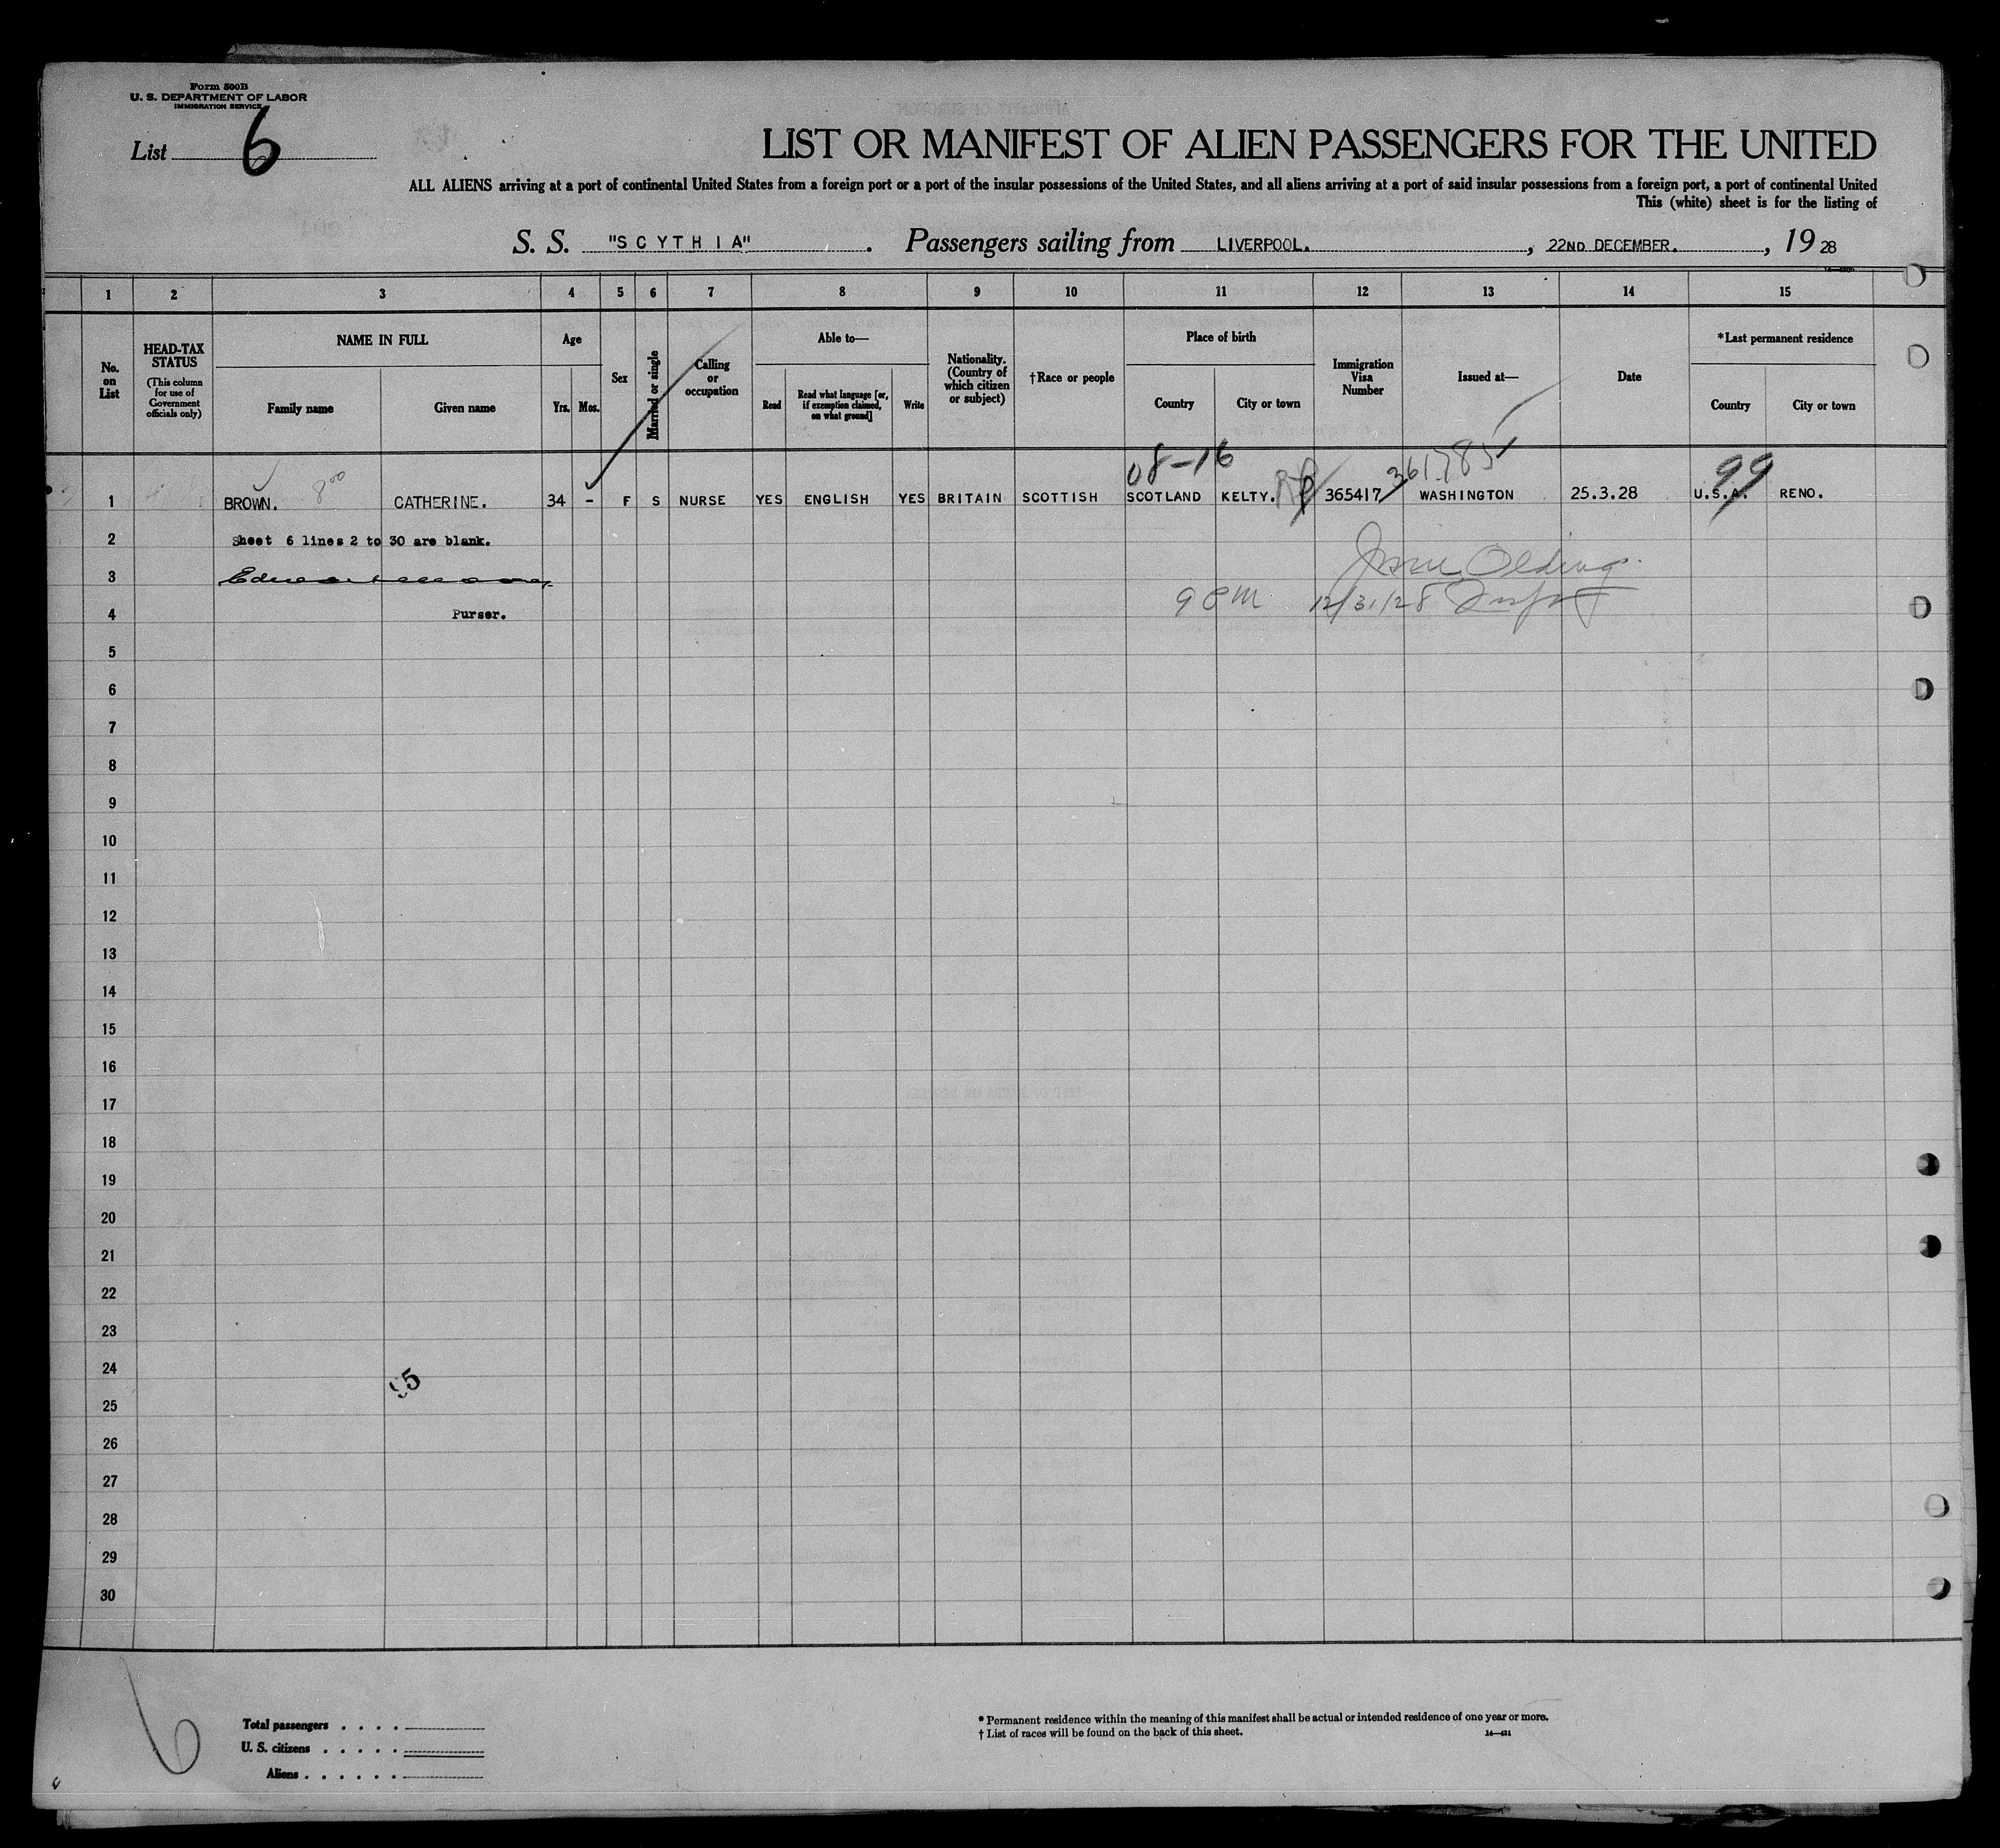 Form 500B
U. S. DEPARTMENT OF LABOR
IMMIGRATION SERVICE
List 6
LIST OR MANIFEST OF ALIEN PASSENGERS FOR THE UNITED
ALL ALIENS arriving at a port of continental United States from a foreign port or a port of the insular possessions of the United States, and all aliens arriving at a port of said insular possessions from a foreign port, a port of continental United
This (white) sheet is for the listing of
S. S. "SCYTHIA" . Passengers sailing from LIVERPOOL. , 22ND DECEMBER. , 19 28
1 2 3 4 5 6 7 8 9 10 11 12 13 14 15
No. on List
HEAD-TAX STATUS (This column for use of Government officials only)
NAME IN FULL
Family name Given name
Age
Yrs. Mos.
Sex
Married or single
Calling or occupation
Able to—
Read
Read what language [or, if exemption claimed, on what ground]
Write
Nationality. (Country of which citizen or subject)
†Race or people
Place of birth
Country City or town
Immigration Visa Number
Issued at—
Date
*Last permanent residence
Country City or town
08-16 361785 99
1 BROWN. 8 00 CATHERINE. 34 - F S NURSE YES ENGLISH YES BRITAIN SCOTTISH SCOTLAND KELTY. RP 365417 WASHINGTON 25.3.28 U.S.A. RENO.
2 Sheet 6 lines 2 to 30 are blank.
3 Olding
4 Purser. 12/31/28
5
6
7
8
9
10
11
12
13
14
15
16
17
18
19
20
21
22
23
24
95
25
26
27
28
29
30
6
Total passengers . . . .
U. S. citizens . . . . .
Aliens . . . . . .
* Permanent residence within the meaning of this manifest shall be actual or intended residence of one year or more.
† List of races will be found on the back of this sheet.